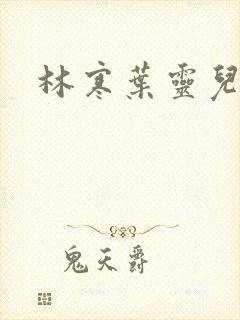 林寒葉靈兒
鬼天爵